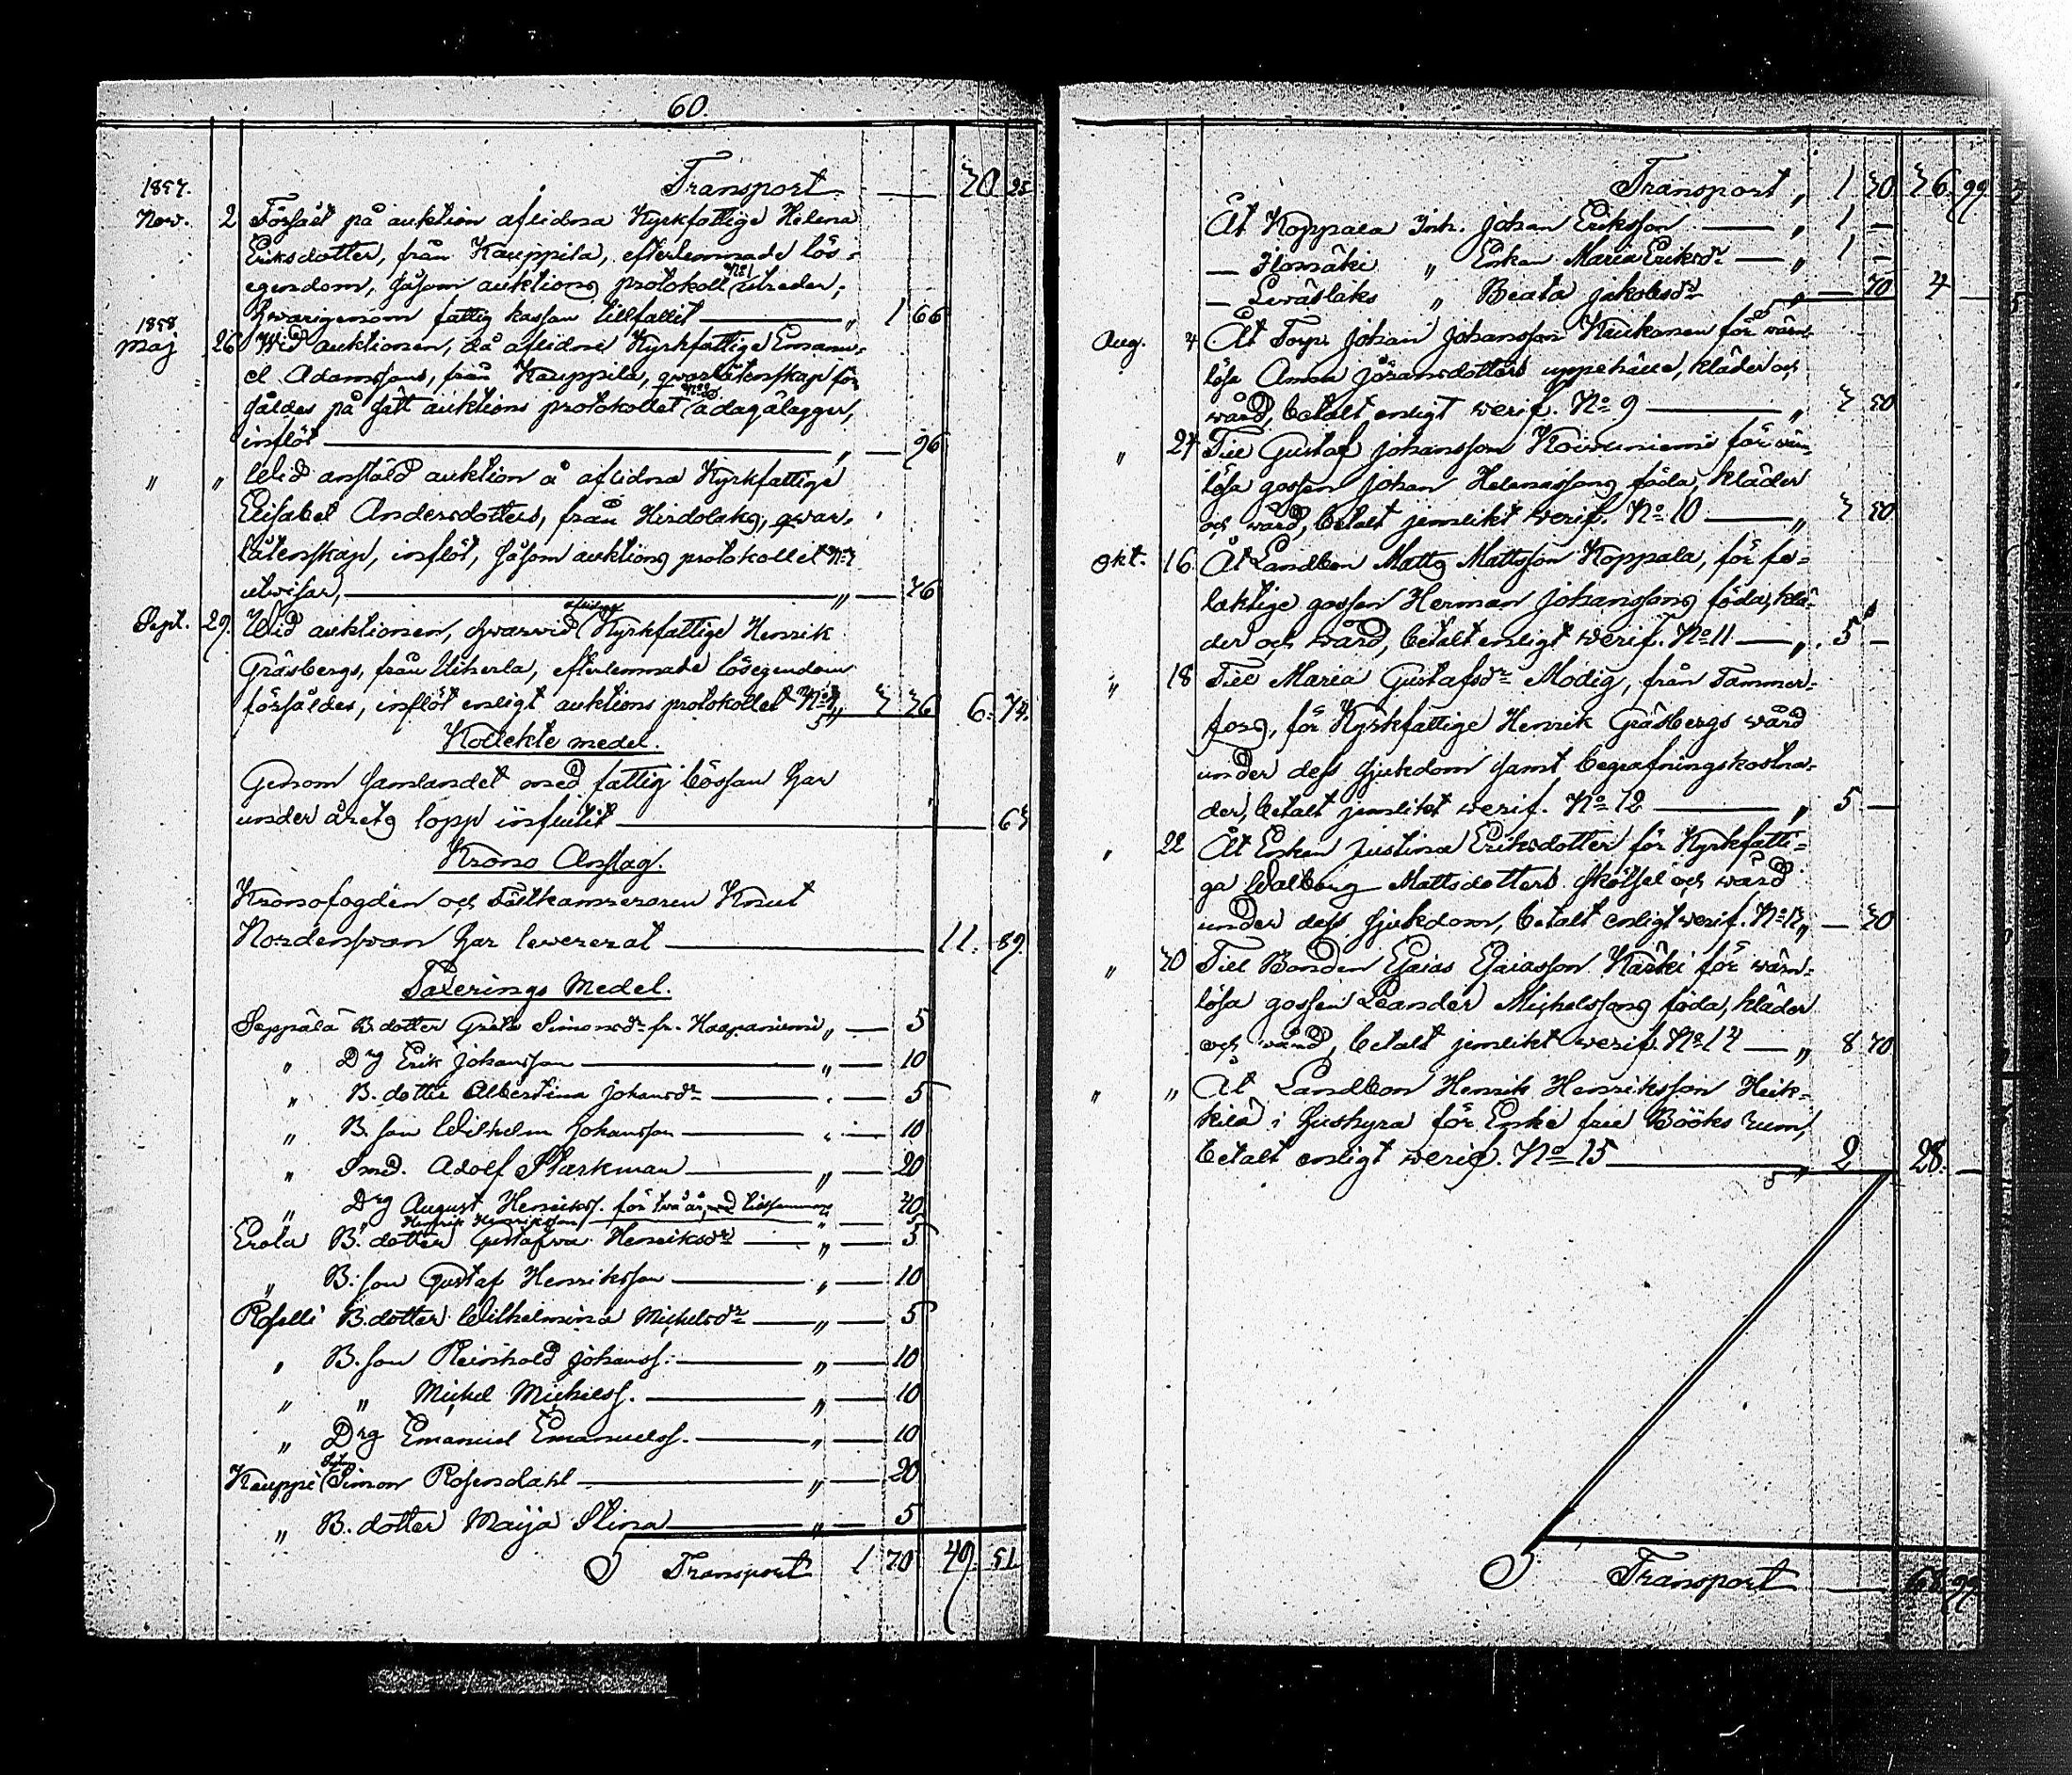 60.
Transport — 30 25
1857.
Nov. 2 Försålt på auktion aflidna Kyrkfattige Helena
Eriksdotter, från Kauppila, efterlemnade lös-
egendom, såsom auktions protokoll N:o 1 utreder,
hwarigenom fattig kassan tillfallit — „ 1 66
1858
Maj 26 Wid auktionen, då aflidne Kyrkfattige Emanu-
el Adamssons, från Kauppila, qwarlåtenskap för-
såldes på sätt auktions protokollet N:o 2 ådagalägger,
inflöt — „ — 96
„ „ Wid anstäld auktion å aflidna Kyrkfattige
Elisabet Andersdotters, från Hirdolaks, qwar-
låtenskap, inflöt, såsom auktions protokollet N:o 3
utwisar, — „ — 36
Sept. 29. Wid auktionen, hwarwid aflidne Kyrkfattige Henrik
Gräsbergs, från Uiherla, efterlemnade lösegendom
försåldes, inflöt enligt auktions protokollet N:o 4 „ 3 36 6. 34.
Kollekte medel.
Genom samlandet med fattig bössan har
under årets lopp influtit — 63
Krono Anslag.
Kronofogden och Fältkamreraren Knut
Nordenswan har levererat — 11. 89.
Taxerings Medel.
Seppälä B. dotter Greta Simonsdr fr. Haapaniemi „ — 5
„ Drg Erik Johansson — „ — 10
„ B. dotter Albertina Johansdr — „ — 5
„ B. son Wilhelm Johansson — „ — 10
„ Smed. Adolf Starkman — „ — 20
„ Drg August Henrikss. för två år, med tillsammans 40
„ Henrik Henriksson — „ — 5
Erola B. dotter Gustafva Henriksdr — „ — 5
„ B. son Gustaf Henriksson — „ — 10
Roselli B. dotter Wilhelmina Michelsdr — „ — 5
„ B. son Reinhold Johanss. — „ — 10
„ „ Michel Michelss. — „ — 10
„ Drg Emanuel Emanuelss. — „ — 10
Kauppi Simon Rosendahl — „ — 20
„ B. dotter Maija Stina — „ — 5
Transport 1 70 49. 51
Transport „ 1 30 36. 99
Åt Koppala Inh. Johan Eriksson — „ 1 —
— Ilomäki „ Enkan Maria Eriksdr — „ 1 —
— Lewäslaks „ Beata Jakobsdr — „ — 70 4 —
Aug. 4 Åt Torp. Johan Johansson Kaukanen för wärn-
lösa Anna Jöransdotters uppehälle, kläder och
wård, betalt enligt werif. N:o 9 — „ 3 50
„ 24 Till Gustaf Johansson Koivuniemi för wärn-
lösa gossen Johan Helenassons föda, kläder
och wård, betalt jemlikt werif. N:o 10 — „ 3 50
Okt. 16. Åt Landbon Matts Mattsson Koppala, för fa-
laktige gossen Herman Johanssons föda, klä-
der och wård, betalt enligt werif. N:o 11 — „ 5 —
„ 18 Till Maria Gustafsdr Modig, från Tammer-
fors, för Kyrkfattige Henrik Gräsbergs wård
under dess sjukdom samt begrafningskostna-
der, betalt jemlikt werif. N:o 12 — „ 5 —
„ 22 Åt Enkan Justina Eriksdotter för Kyrkfatti-
ga Walborg Mattsdotters skötsel och wård
under dess sjukdom, betalt enligt werif. N:o 13 „ — 30
„ 30 Till Bonden Esaias Esaiasson Kärki för wärn-
lösa gossen Leander Michelssons föda, kläder
och wård, betalt jemlikt werif. N:o 14 — „ 8 70
„ „ Åt Landbon Henrik Henriksson Heik-
kilä i hushyra för Enke fru Bööks rum,
betalt enligt werif. N:o 15 — „ 2 28. —
Transport — 68 99